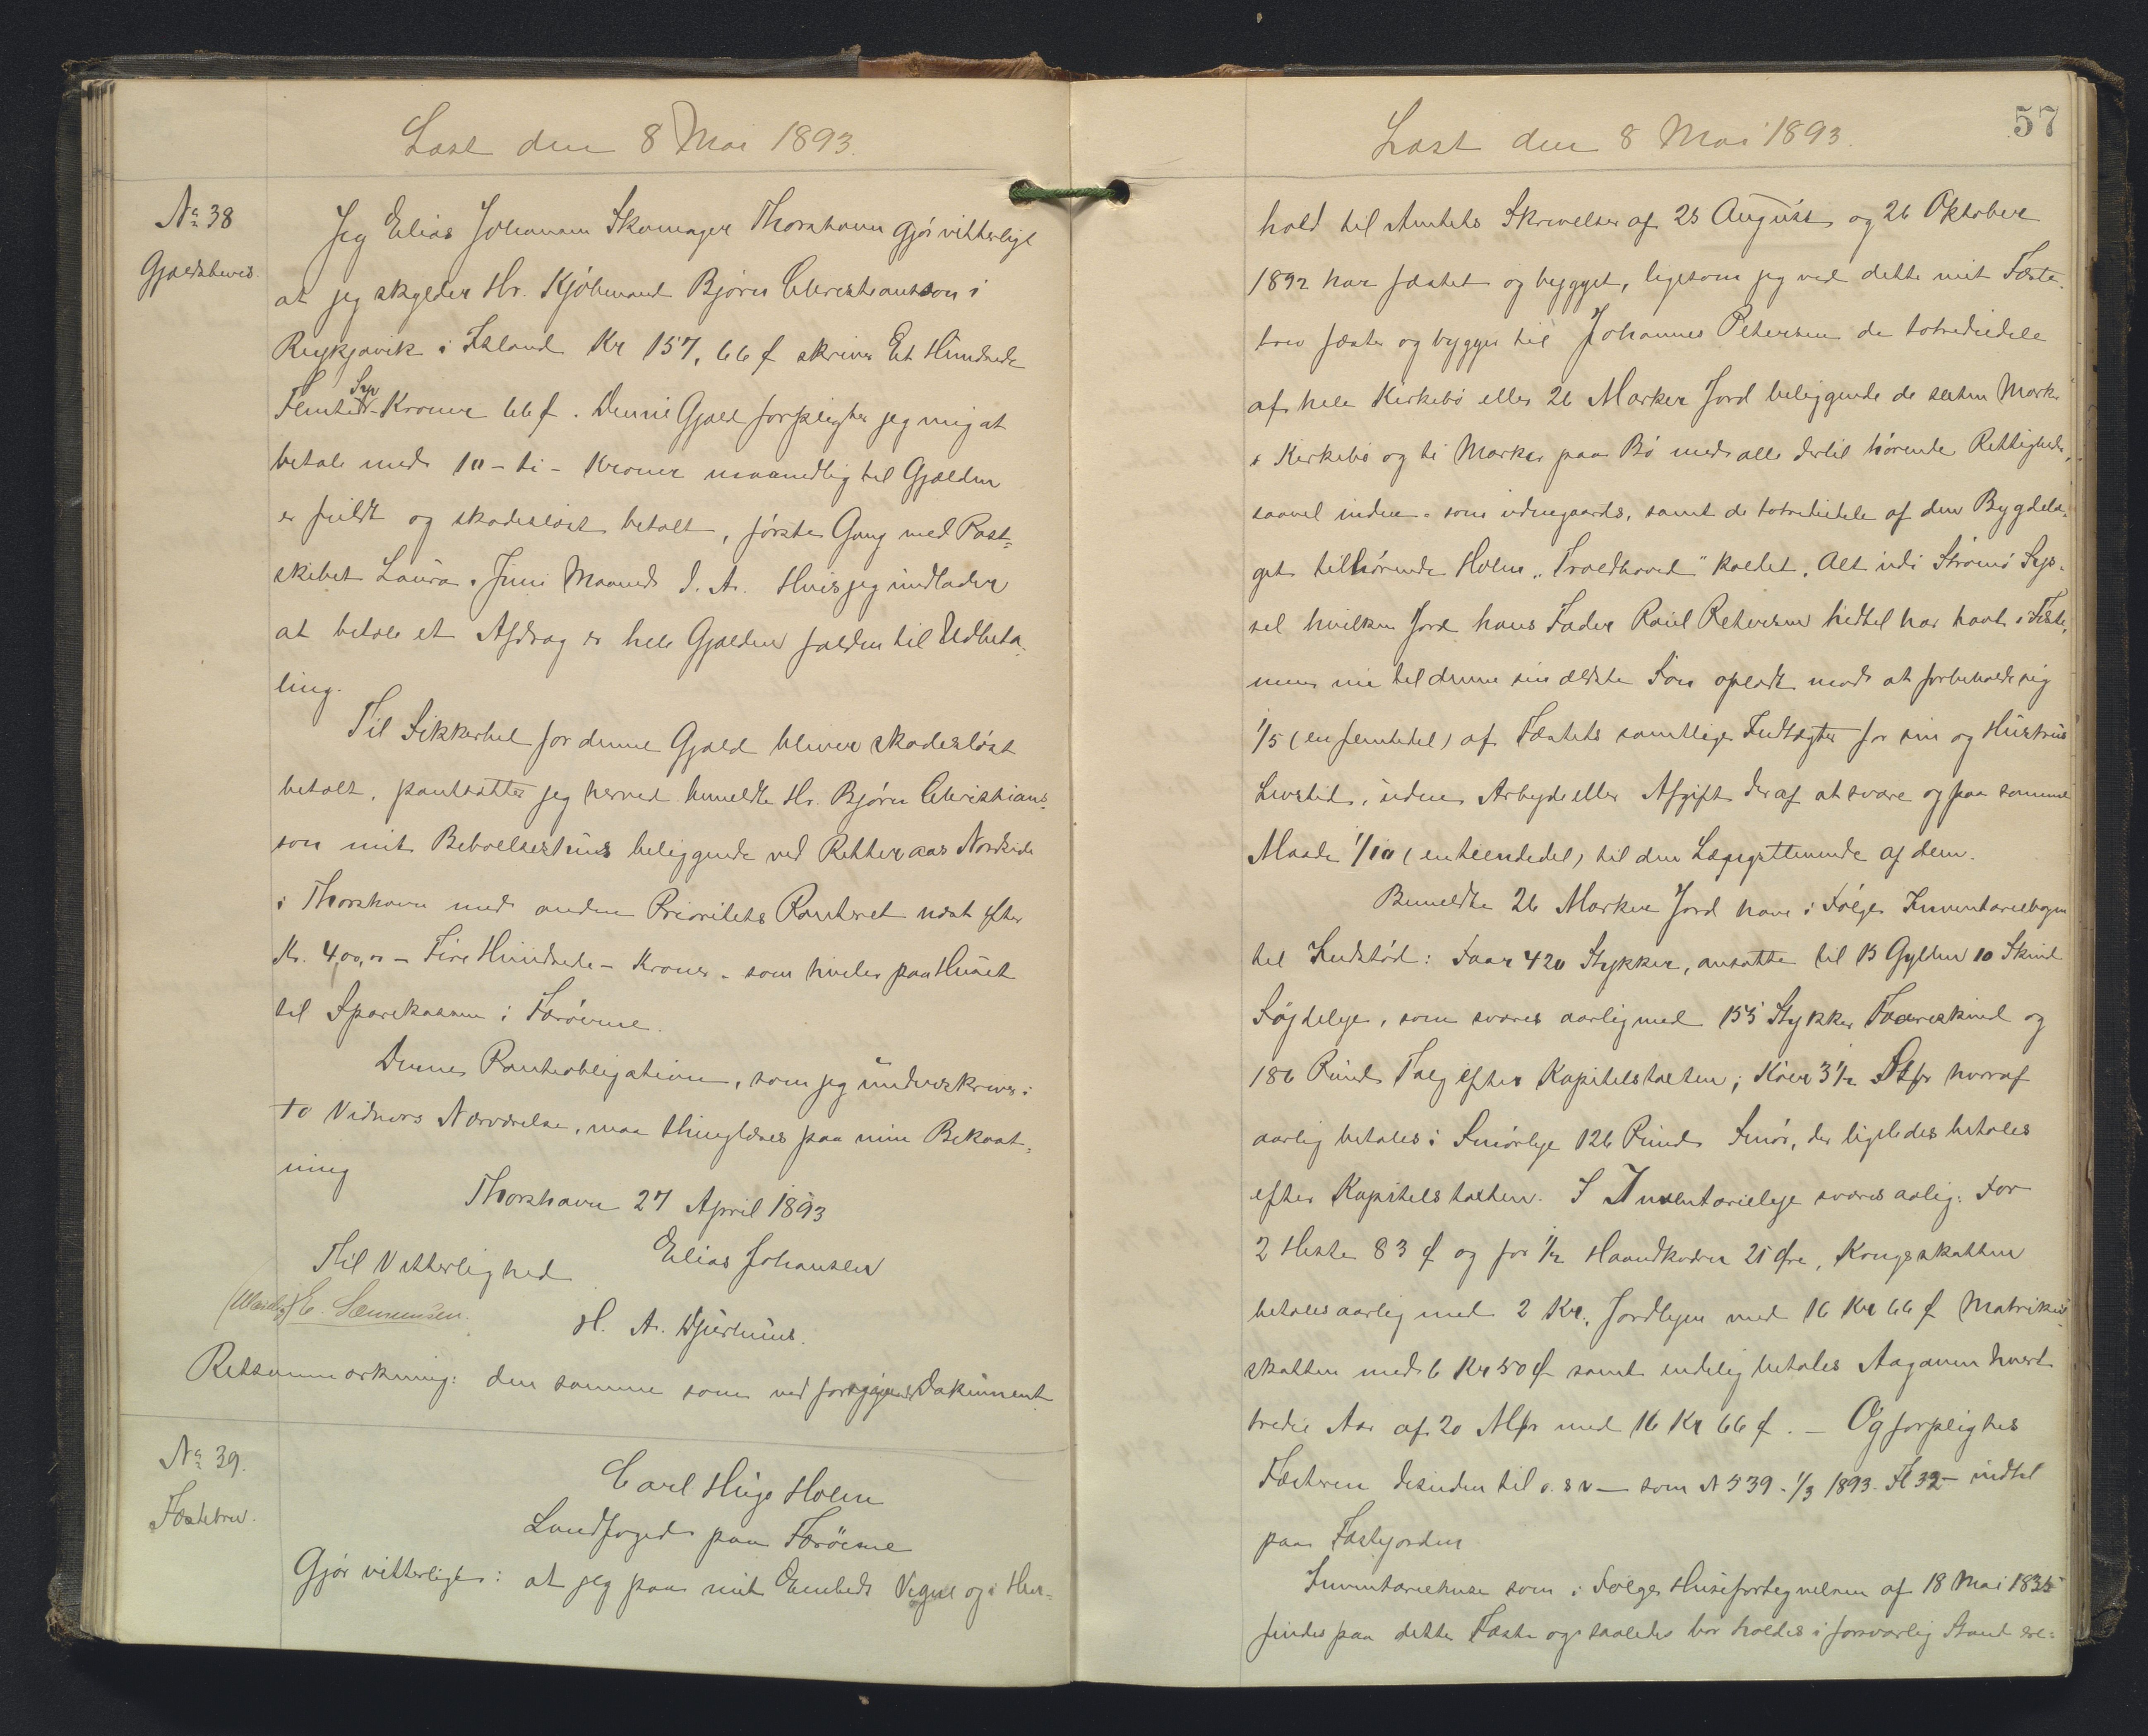 Læst den 8 Mai 1893.
No 38
Gjældsbevis.
Jeg Elias Johansen Skomager Thorshavn gjør vitterligt
at jeg skylder Hr. Kjøbmand Bjørn Christiansson i
Reykjavik i Island Kr 157,66 ₡ skriver Et Hundrede
Femti Syv Kroner 66 ₡. Denne Gjæld forpligter jeg mig at
betale med 10 - ti - Kroner maanedlig til Gjælden
er fuldt og skadesløst betalt, første Gang med Post=
skibet Laura i Juni Maaned d. A. Hvis jeg undlader
at betale et Afdrag er hele Gjælden falden til Udbeta=
ling.
Til Sikkerhed for denne Gjæld bliver skadesløst
betalt, pantsætter jeg herved bemeldte Hr. Bjørn Christians=
son mit Beboelseshus beliggende ved Rætteraas Nordside
i Thorshavn med anden Prioritets Panteret næst efter
Kr. 400,00 - Fire Hundrede - Kroner - som hviler paa Huset
til Sparekassen i Færøerne.
Denne Panteobligation, som jeg underskriver i
to Vidners Nærværelse, maa thinglæses paa min Bekost=
ning
Thorshavn 27 April 1893
Elias Johansen
Til Vitterlighed
H. A. Djurhuus.
Retsanmærkning: den samme som ved foregaaende Dokument
No 39.
Fæstebrev.
Carl Hugo Holm
Landfoged paa Færøerne
Gjør vitterligt: at jeg paa mit Embeds Vegne og i Hen=
57
Læst den 8 Mai 1893.
hold til Amtets Skrivelser af 25 August og 26 Oktober
1892 har fæstet og bygget, ligesom jeg ved dette mit Fæste=
brev fæster og bygger til Johannes Petersen de totrediedele
af hele Kirkebø eller 26 Marker Jord beliggende de sexten Marker
i Kirkebø og ti Marker paa Bø med alle dertil hørende Rettigheder,
saavel inden- som udengaards, samt de totrediedele af den Bygdela=
get tilhørende Holm "Troldhoved" kaldet, Alt udi Strømø Sys=
sel hvilken Jord hans Fader Poul Petersen hidtil har havt i Fæste,
men nu til denne sin ældste Søn opladt mod at forbeholde sig
1/5 (en femtedel) af Fæstets samtlige Indtægter for sin og Hustrus
Livstid, uden Arbejde eller Afgift deraf at svare og paa samme
Maade 1/10 (en tiendedel) til den Længstlevende af dem.
Bemeldte 26 Marker Jord have i Følge Inventariebogen
til Indstød: Faar 420 Stykker, ansatte til 13 Gylden 10 Skind
Søjdeleje, som svares aarlig med 155 Stykker Faareskind og
186 Pund Talg efter Kapitelstaxten; Køer 3 1/2 Stkr hvoraf
aarlig betales i Smørleje 126 Pund Smør, der ligeledes betales
efter Kapitelstaxten. I Inventarieleje svares aarlig: For
2 Heste 83 ₡ og for 1/2 Haandkværn 21 Øre, Kongsskatten
betales aarlig med 2 Kr., Jordlejen med 16 Kr 66 ₡ Matrikul
skatten med 6 Kr 50 ₡ samt endelig betales Aagaven hvert
tredie Aar af 20 Mkr med 16 Kr 66 ₡. - Og forpligtes
Fæsteren desuden til o.s.v - som N 539 - 1/3 1893. Fl 32 - indtil
paa Fæstejorden
Inventariehuse som i Følge Husefortegnelsen af 18 Mai 1835
findes paa dette Fæste og saaledes bør holdes i forsvarlig Stand ere: